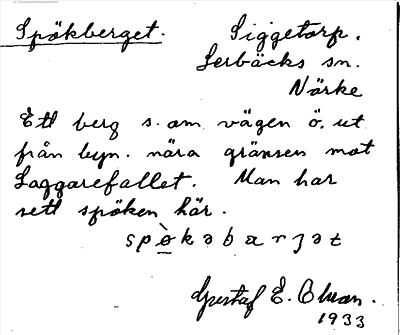 Spökberget. Siggetorp.
Lerbäcks sn.
Närke
Ett berg s. om vägen ö. ut
från byn. nära gränsen mot
Laggarefallet. Man har
sett spöken här.
spø̀kəbarjət
Gustaf E. Olsson.
1933